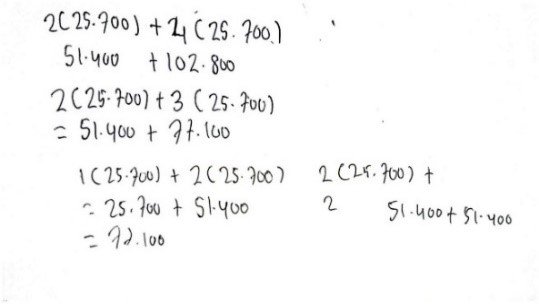 2(25.700) + 4(25.700)
51.400 + 102.800
2(25.700) + 3(25.700)
= 51.400 + 77.100
1(25.700) + 2(25.700)
= 25.700 + 51.400
= 77.100
2(25.700) +
2 51.400 + 51.400